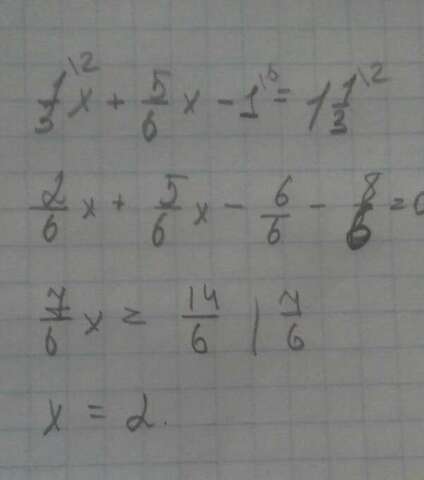 1/3\2 x + 5/6 x - 1\6 = 1 1/3\2
2/6 x + 5/6 x - 6/6 - 8/6 = 0
7/6 x = 14/6 | 7/6
x = 2.